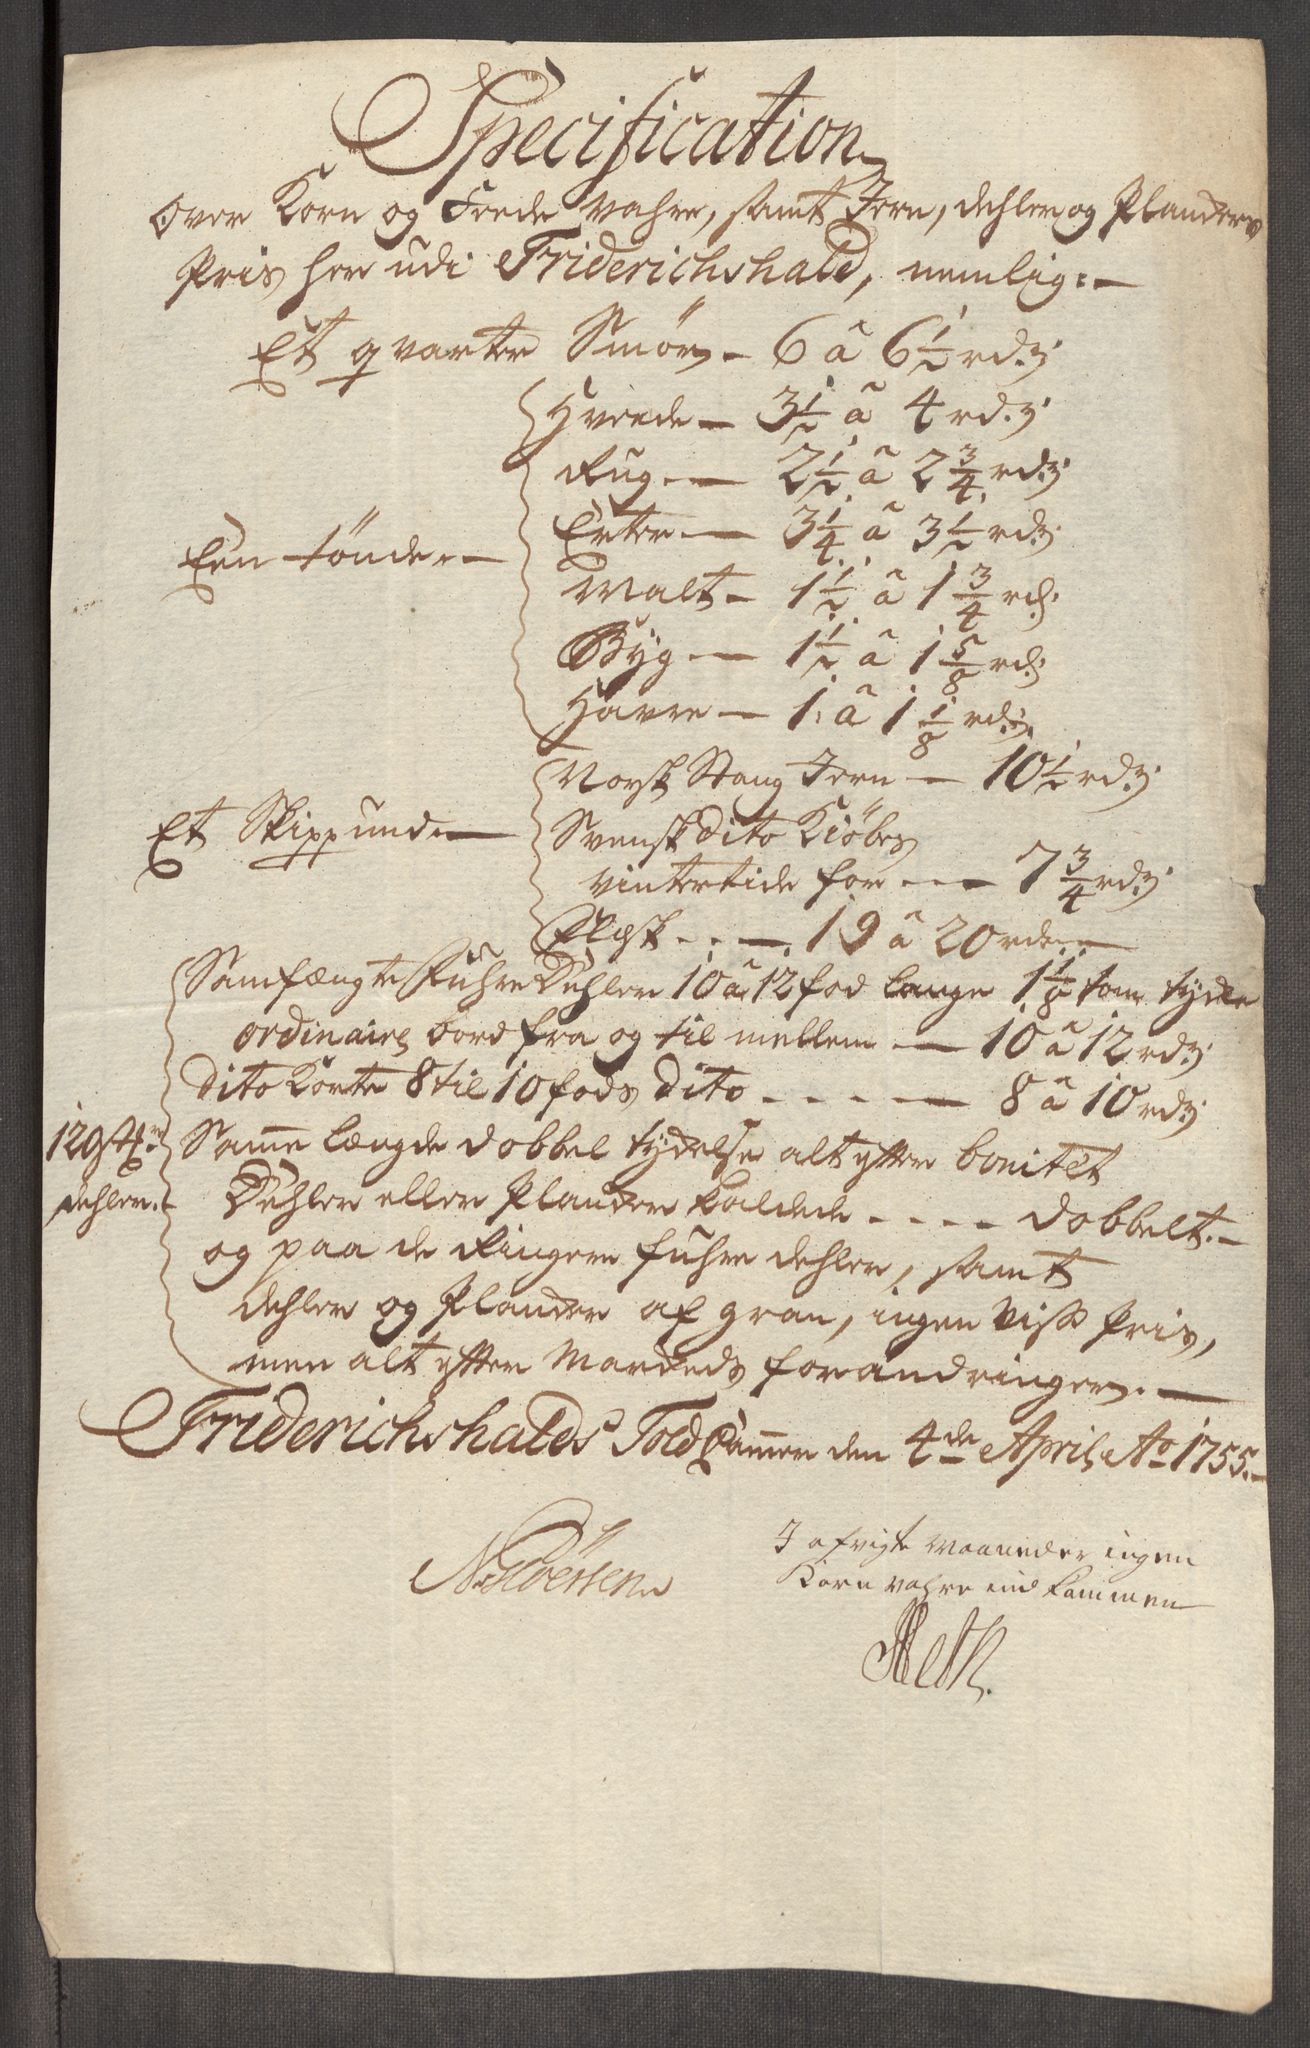 Specification
Over Korn og Feede vahre, samt Jern, dehler og Plancker
Priis her udi Friderichshald, nemlig: —
Et qvarter Smör - 6 â 6 1/2 rd.
Hveede — 3 1/2 â 4 rd.
Rug — 2 1/2 â 2 3/4 rd.
Erter — 3 1/4 â 3 1/2 rd.
Een tönde —
Malt - 1 1/2 â 1 3/4 rd.
Byg — 1 1/2 â 1 5/8 rd.
Havre — 1 â 1 1/8 rd.
Norsk Stang Jern — 10 1/2 rd.
Et Skippund —
Svensk dito Kiöbes
vintertide for — 7 3/4 rd.
Flesk — 19 â 20 rd —
Samfængte Fuhre Dehler 10 â 12 fod lange 1 1/8 tom tycke
ordinaire bord fra og til mellem — 10 â 12 rd.
dito Korte 8 til 10 fods dito — 8 â 10 rd.
120 st
dehler.
Samme længde dobbel tyckelse alt efter bonitet
Dehler eller Plancker kaldede - - - - dobbelt. —
og paa de Ringere fuhre dehler, samt
dehler og Plancker af gran, ingen viss Priis,
men alt efter Markeds forandringer. —
Friderichshalds Told Cammer den 4de April Ao 1755. —
J öfrigte Maaneder ingen
Korn vahre ind kommen